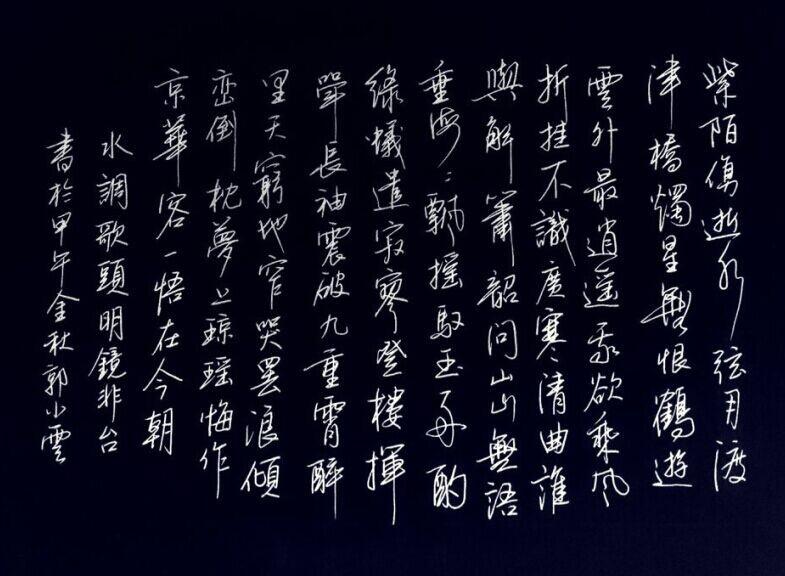 紫陌傷逝水弦月渡
津橋燭星無恨鶴遊
雲外最逍遥我欲乘風
折桂不識廣寒清曲誰
與解簫韶問山山無語
垂海〻飄摇馭玉舟酌
綠蟻遣寂寥登樓揮
舉長袖震破九重霄醉
里天窮地窄哭罷浪傾
巒倒枕夢上瓊瑤悔作
京華客一悟在今朝
水調歌頭明鏡非台
書於甲午金秋郭小雲